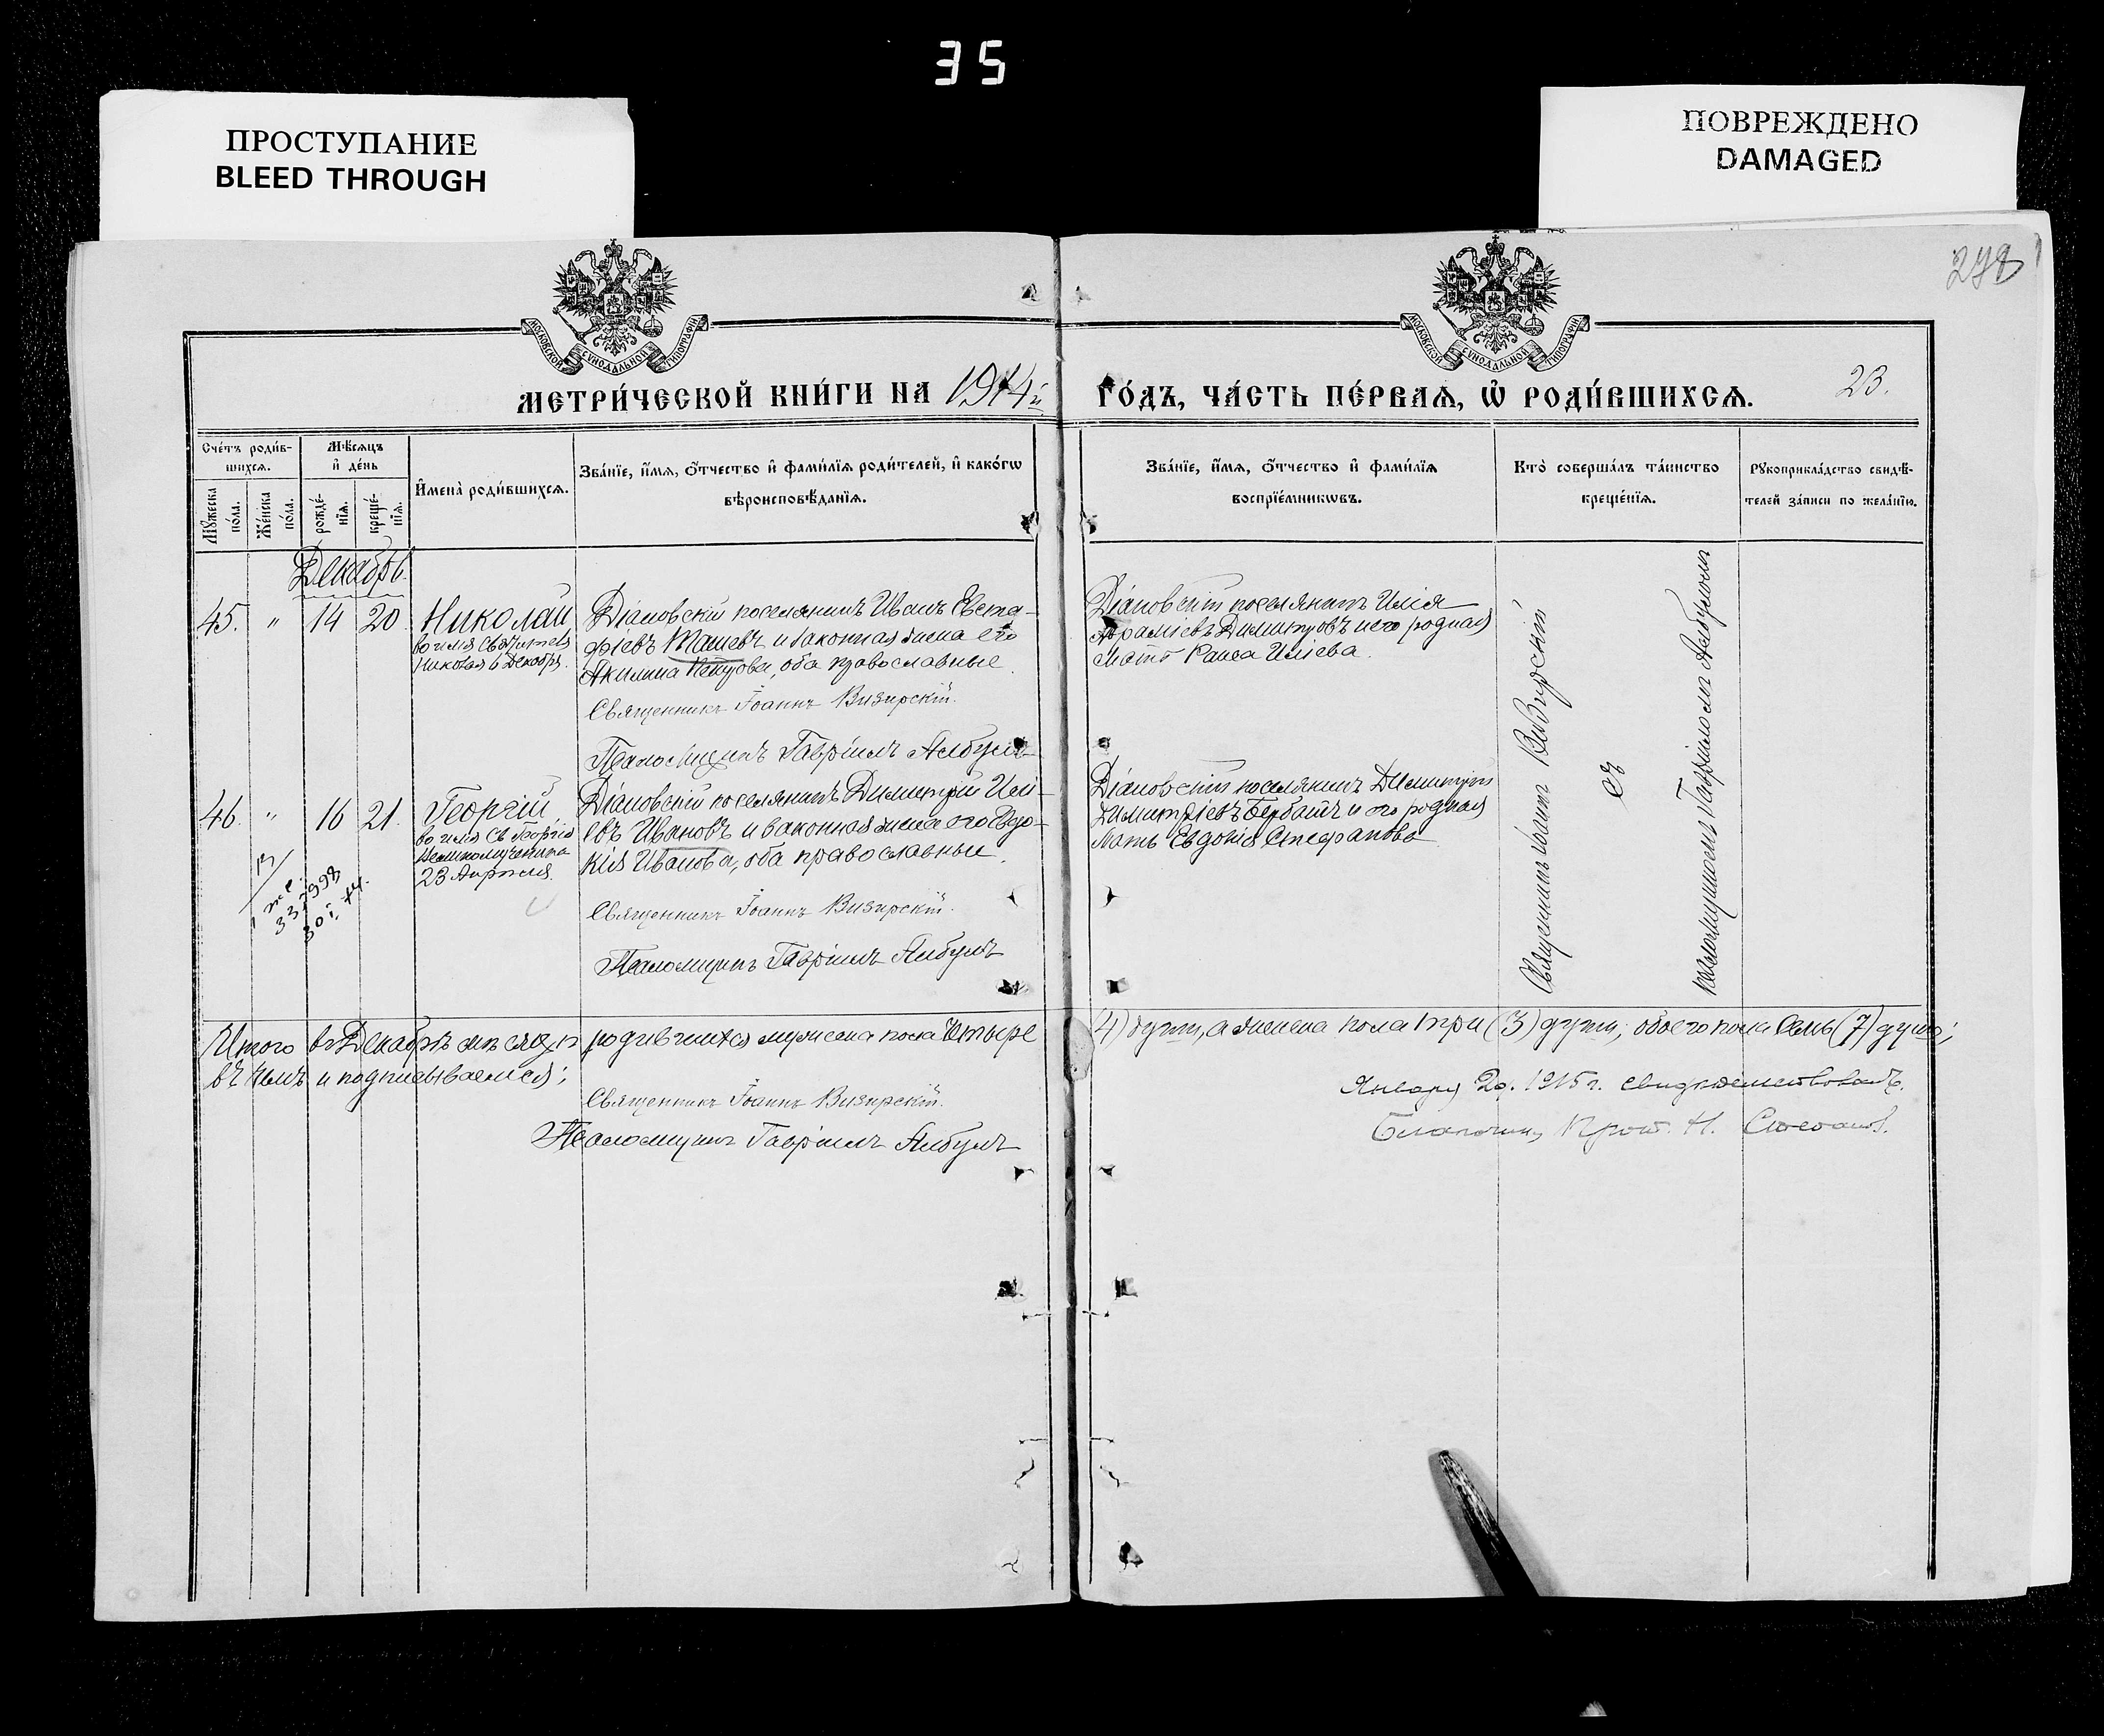 35
ПРОСТУПАНИЕ
BLEED THROUGH
ПОВРЕЖДЕНО
DAMAGED
278
МОСКОВСКОЙ СѴНОДАЛЬНОЙ ТИПОГРАФІИ
МОСКОВСКОЙ СѴНОДАЛЬНОЙ ТИПОГРАФІИ
МЕТРИ́ЧЕСКОЙ КНИ́ГИ НА 1914й
ГО́ДЪ, ЧА́СТЬ ПЕ́РВАѦ, Ѡ҆ РОДИ́ВШИХСѦ.
23.
Сче́тъ роди́в-
шихсѧ.
Мꙋ́жеска по́ла.
Же́нска по́ла.
Мѣ́сѧцъ
и҆ де́нь
рожде́-
нїѧ.
креще́-
нїѧ.
И҆мена̀ роди́вшихсѧ.
Зва́нїе, и҆́мѧ, ѻ҆́тчество и҆ фами́лїѧ роди́телей, и҆ како́гѡ
вѣроисповѣ́данїѧ.
Зва́нїе, и҆́мѧ, ѻ҆́тчество и҆ фами́лїѧ
воспрїе́мникѡвъ.
Кто̀ соверша́лъ та́инство
креще́нїѧ.
Рꙋкоприкла́дство свидѣ́-
телей за́писи по жела́нїю.
Декабрь.
45. " 14 20 Николай
во имя Святителя
Николая 6 Декабря.
Діановскій поселянинъ Иванъ Евста-
фіевъ Ташевъ и законная жена его
Акилина Петрова, оба православные.
Священникъ Іоаннъ Визирскій.
Псаломщикъ Гавріилъ Албулъ
Діановскій поселянинъ Илія
Димитровъ и его родная
мать Раиса Иліева.
46. " 16 21. Георгій
во имя Св. Георгія
Великомученика
23 Апрѣля.
Діановскій поселянинъ Димитрій Илі-
евъ Ивановъ и законная жена его Евдо-
кія Иванова, оба православные.
Священникъ Іоаннъ Визирскій.
Псаломщикъ Гавріилъ Албулъ
Діановскій поселянинъ Димитрій
Димитріевъ Бербатъ и его родная
мать Евдокія Стефанова
Священникъ Іоаннъ Визирскій
съ
псаломщикомъ Гавріиломъ Албуломъ
Итого въ Декабрѣ мѣсяцѣ родившихся мужеска пола четыре (4) души, а женска пола три (3) души, обоего пола семь (7) душъ;
въ чемъ и подписываемся:
Священникъ Іоаннъ Визирскій.
Псаломщикъ Гавріилъ Албулъ
Января 20. 1915 г. свидѣтельствовалъ.
Благочин. Прот. Н. Стоянов.